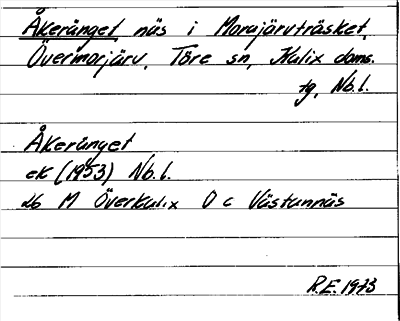 Åkeränget, näs i Morajärvträsket,
Övermorjärv, Töre sn, Kalix doms.
tg, Nb.l.
Åkeränget
ek (1953) Nb.l.
db M Överkalix O c Västannäs
R.E. 1973